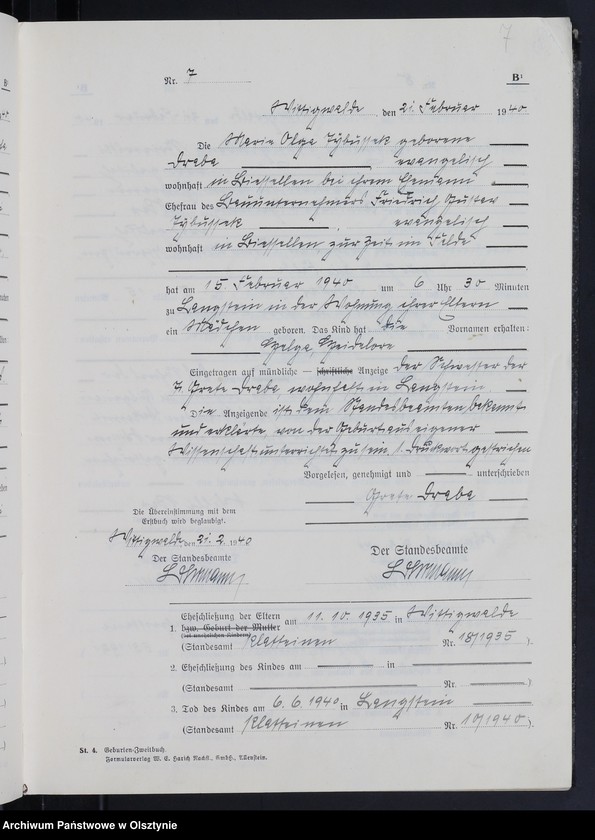 7
Nr. 7 B¹
Wittigwalde, den 21. Februar 1940
Die Marie Olga Tybussek geborene
Draba evangelisch
wohnhaft in Biessellen bei ihrem Ehemann
Ehefrau des Bauunternehmers Friedrich Gustav
Tybussek, evangelisch
wohnhaft in Biessellen zur Zeit im Felde
hat am 15. Februar 1940 um 6 Uhr 30 Minuten
zu Langstein in der Wohnung ihrer Eltern
ein Mädchen geboren. Das Kind hat die Vornamen erhalten:
Helga, Heidelore
Eingetragen auf mündliche — schriftliche Anzeige der Schwester der
Grete Draba wohnhaft in Langstein.
Die Anzeigende ist dem Standesbeamten bekannt
und erklärte von der Geburt aus eigener
Wissenschaft unterrichtet zu sein, 1 Druckwort gestrichen
Vorgelesen, genehmigt und unterschrieben
Grete Draba
Die Übereinstimmung mit dem
Erstbuch wird beglaubigt.
Wittigwalde den 21. 2. 1940
Der Standesbeamte
Der Standesbeamte
Eheschließung der Eltern am 11. 10. 1935 in Wittigwalde
1. bzw. Geburt der Mutter
(bei unehelichen Kindern)
(Standesamt Platteinen Nr. 18/1935).
2. Eheschließung des Kindes am in
(Standesamt Nr. ).
3. Tod des Kindes am 6. 6. 1940 in Langstein
(Standesamt Platteinen Nr. 10/1940).
St. 4. Geburten-Zweitbuch.
Formularverlag W. E. Harich Nachf., GmbH., Allenstein.
Archiwum Państwowe w Olsztynie